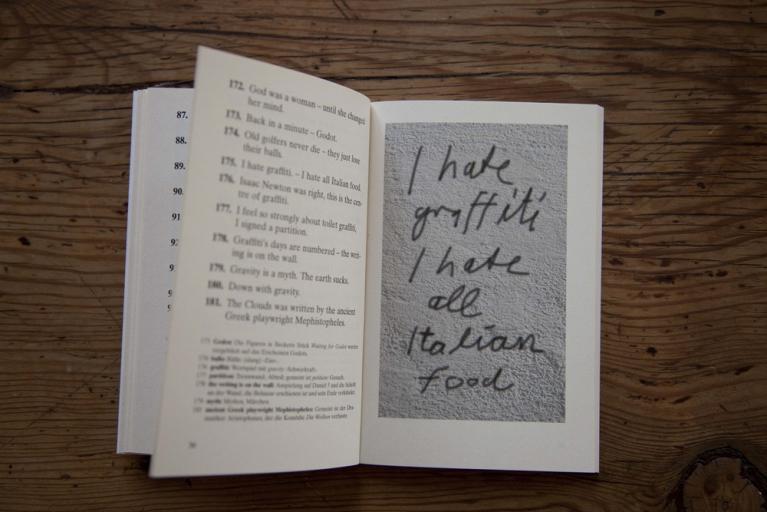 87.
88.
89.
90
91
92
9
9
172. God was a woman – until she changed
her mind.
173. Back in a minute – Godot.
174. Old golfers never die – they just lose
their balls.
175. I hate graffiti. – I hate all Italian food.
176. Isaac Newton was right, this is the cen-
tre of graffiti.
177. I feel so strongly about toilet graffiti,
I signed a partition.
178. Graffiti's days are numbered – the writ-
ing is on the wall.
179. Gravity is a myth. The earth sucks.
180. Down with gravity.
181. The Clouds was written by the ancient
Greek playwright Mephistopheles.
173 Godot: Die Figuren in Becketts Stück Waiting for Godot warten
vergeblich auf das Erscheinen Godots.
174 balls: Bälle; (slang)
176 graffiti: Wortspiel mit gravity
177 partition: Trennwand, Abteil; gemeint ist petition: Gesuch.
178 the writing is on the wall: Anspielung auf Daniel 5 und die Schrift
an der Wand, die Belsazar erschienen ist und sein Ende verkündet.
179 myth: Mythos, Märchen.
181 ancient Greek playwright Mephistopheles: Gemeint ist der Dra-
matiker Aristophanes, der die Komödie Die Wolken verfasste.
I hate
graffiti
I hate
all
Italian
food